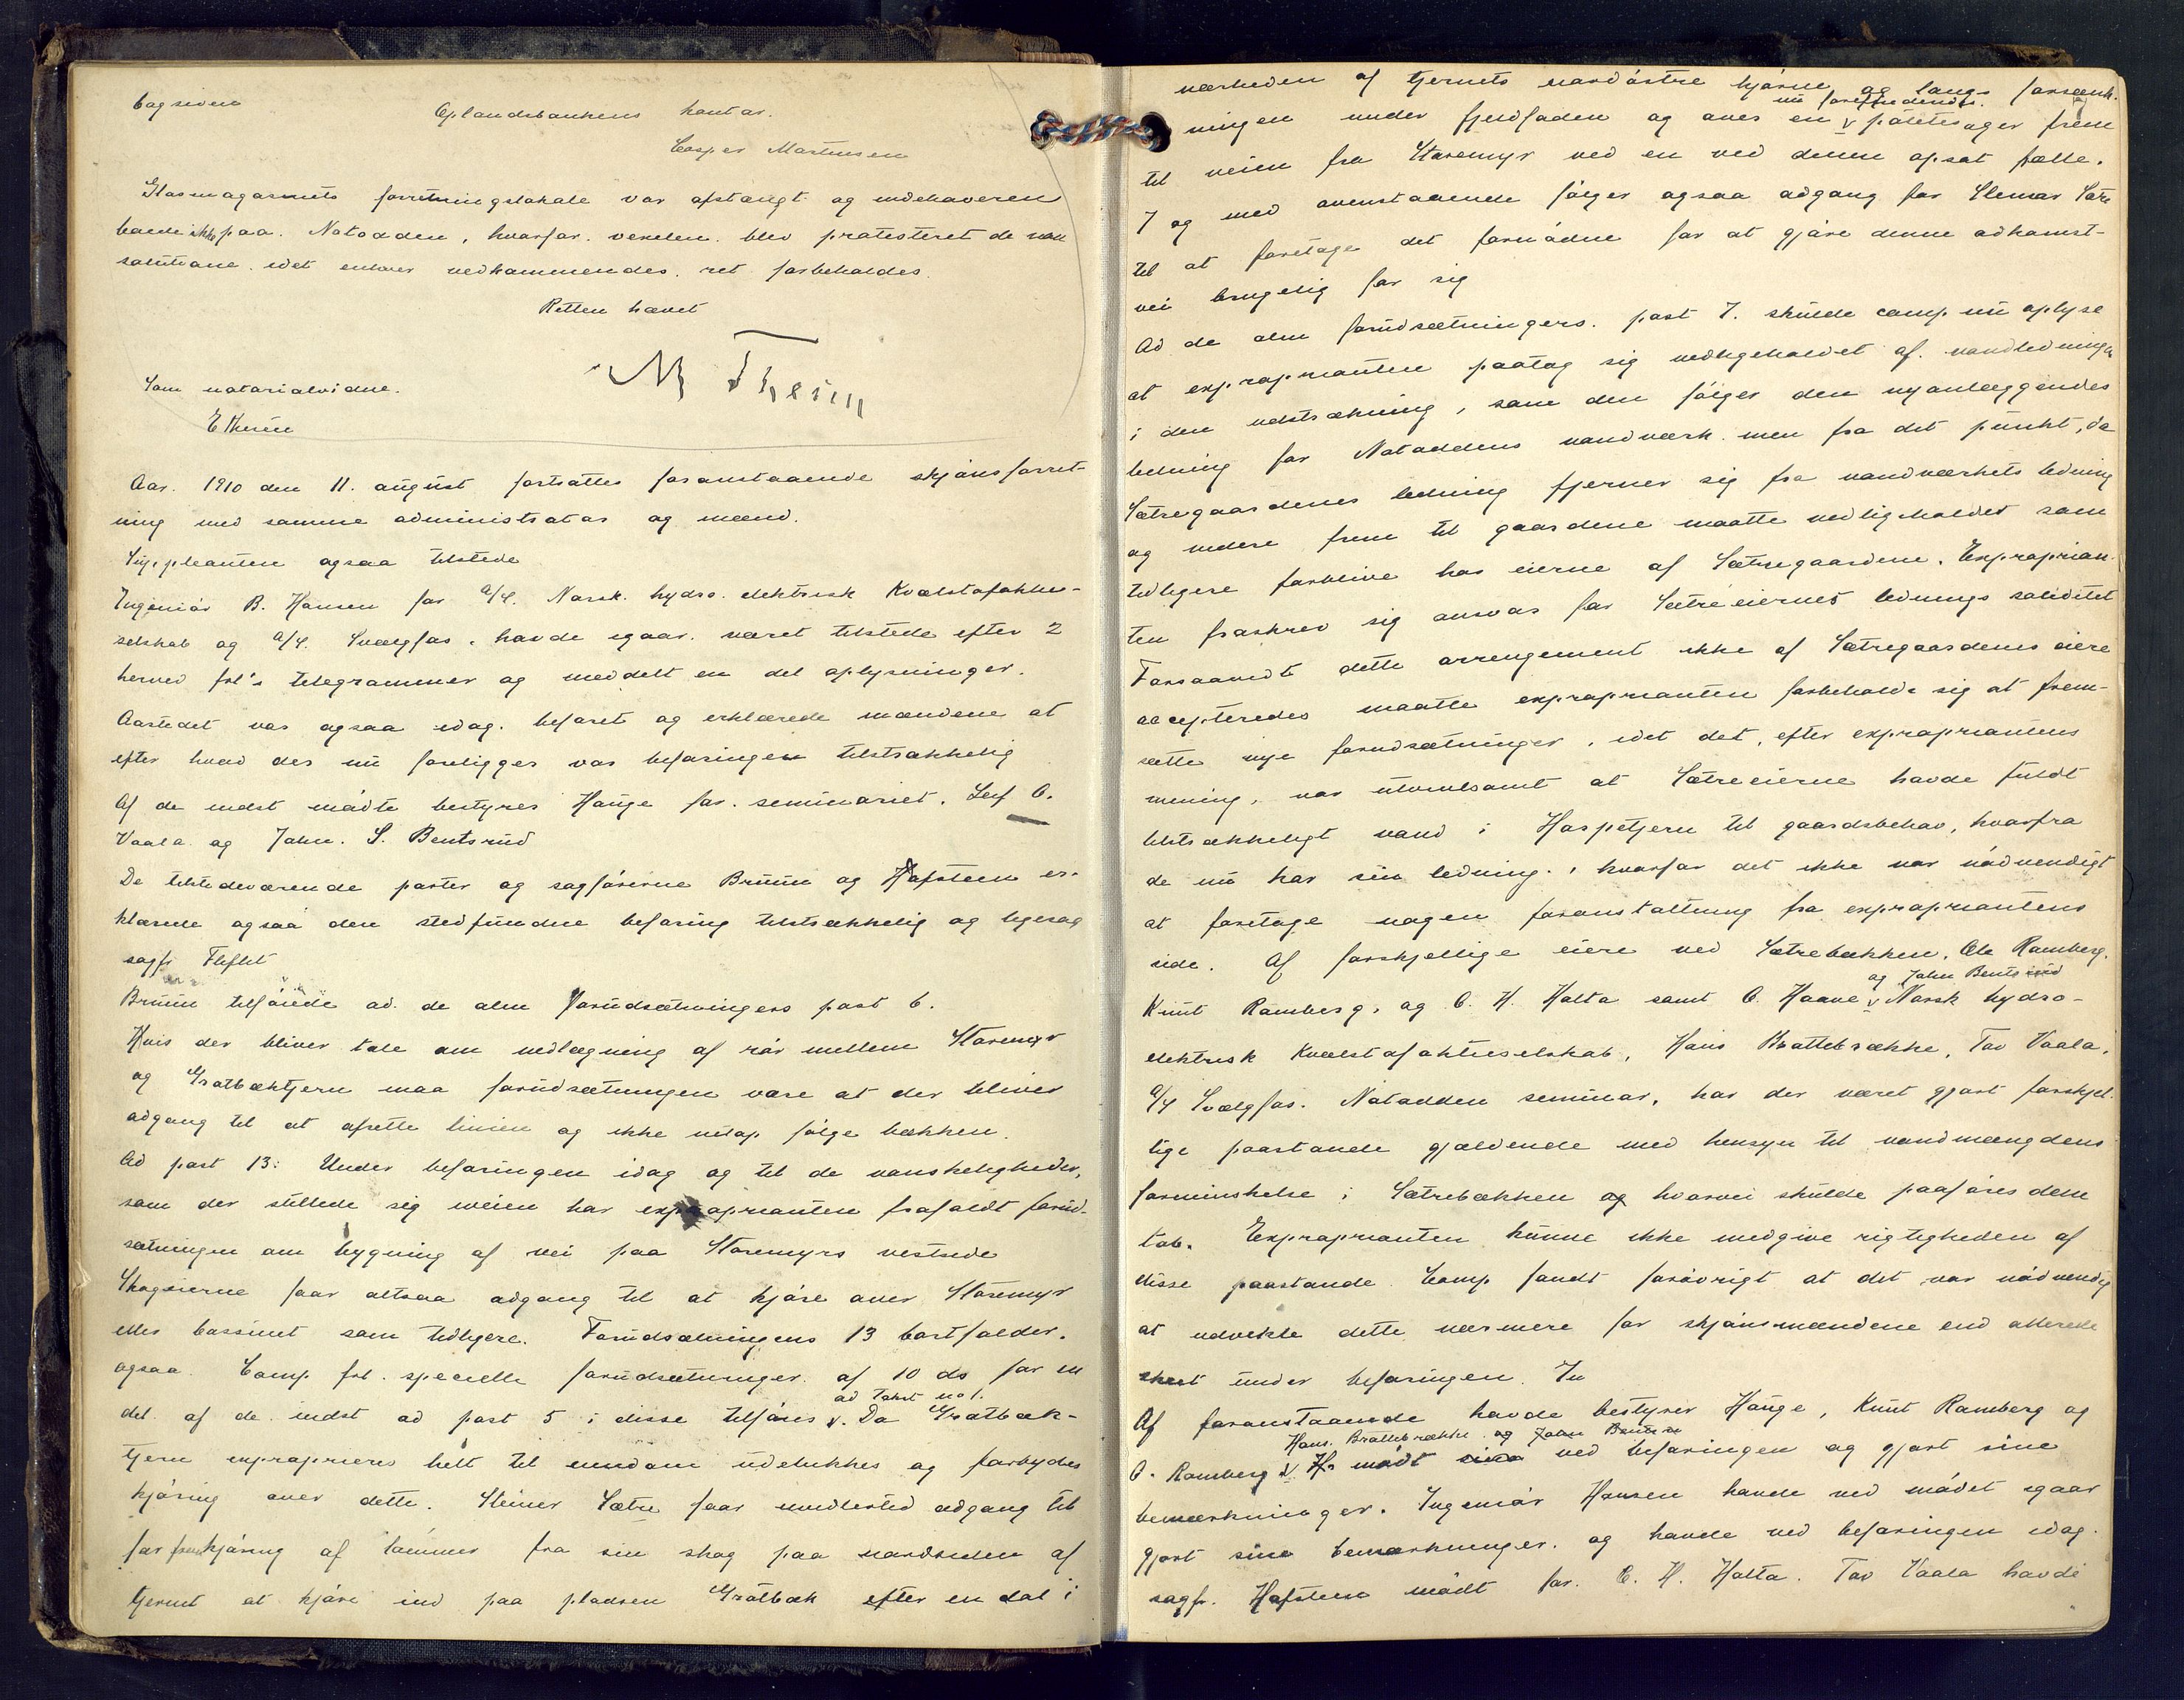 bagsiden
Oplandsbankens kontor.
Casper Martensen
Glasmagasinets forretningslokale var afstængt og indehaveren
boede ikke paa. Notodden, hvorfor. vexelen. blev protesteret de non
solutione. idet enhver vedkommendes. ret forbeholdes.
Retten hævet
M Thesin
Som notarialvidne.
E Thesin
Aar. 1910 den 11. august fortsattes foranstaaende skjønsforret-
ning med samme administrator og mænd.
Suppleanten ogsaa tilstede
Ingeniør B. Hansen for A/S. Norsk. hydro. elektrisk Kvælstofaktie-
selskab og A/S. Svælgfos. havde igaar. været tilstede efter 2
herved føl's telegrammer og meddelt en del oplysninger.
Aastedet var ogsaa idag. befaret og erklærede mændene at
efter hvad der nu foreligger var befaringen tilstrækkelig
Af de indst mødte bestyrer Hauge for. seminariet. Leif O.
Vaala og John. S. Bentsrud
De tilstedeværende parter og sagførerne Bruun og Hofsteen er-
klærede ogsaa den stedfundne befaring tilstrækkelig og ligesaa
sagfr Fleflet
Bruun tilføiede ad. de alm Forudsætningers post 6.
Hvis der bliver tale om nedlægning af rør mellem Storemyr
og Grotbæktjern maa forudsætningen være at der bliver
adgang til at afrette linien og ikke netop følge bækken.
Ad post 13: Under befaringen idag og til de vanskeligheder,
som der stillede sig iveien har exproprianten frafaldt forud-
sætningen om bygning af vei paa Storemyrs vestside
Skogeierne faar altsaa adgang til at kjøre over Storemyr
eller bassinet som tidligere. Forudsætningens 13 bortfalder.
ogsaa. Comp. frl. specielle forudsætninger. af 10 ds for en
ad Takst no 1.
del. af de. indst ad post 5 i disse tilføies v. Da Grotbæk-
tjern exproprieres helt til eiendom udelukkes og forbydes
kjøring over dette. Steinar Sætre faar imidlertid adgang til
for fremkjøring af tømmer fra sin skog paa nordsiden af
tjernet at kjøre ind paa pladsen Grotbæk efter en dal i
nærheden af tjernets nordøstre hjørne og langs forsænk-
nu forefindendes.
ningen under fjeldfoden og over en v potetesager frem
til veien fra Storemyr ved en ved denne opsat pæle.
I og med ovenstaaende følger ogsaa adgang for Steinar Sætre
til at foretage det fornødne for at gjøre denne adkomst-
vei brugelig for sig
Ad de alm forudsætningers. post 7. skulde comp. nu oplyse
at exproprianten paatog sig vedligeholdet af. vandledningen
i den udstrækning, som den følger den nyanlæggendes
ledning for Notoddens vandværk. men fra det punkt, da
Sætregaardenes ledning fjerner sig fra vandværkets ledning
og videre frem til gaardene maatte vedligeholdet som
tidligere forblive hos eierne af Sætregaardene. Exproprian-
ten fraskrev sig ansvar for Sætreeiernes lednings soliditet
Forsaavidt dette arrengement ikke af Sætregaardenes eiere
accepteredes maatte exproprianten forbeholde sig at frem-
sætte nye forudsætninger, idet det, efter expropriantens
mening, var utvivlsomt at Sætreeierne havde fuldt
tilstrækkeligt vand i Haspetjern til gaardsbehov, hvorfra
de nu har sin ledning., hvorfor det ikke var nødvendigt
at foretage nogen foranstaltning fra expropriantens
side. Af forskjellige eiere ved Sætrebækken. Ole Ramberg.
og John Bentsrud
Knut Ramberg, og O. H. Holta samt O. Haave v Norsk hydro-
elektrisk Kvælstofaktieselskab, Hans Brattebrække, Tov Vaala,
A/S Svælgfos. Notodden seminar, har der været gjort forskjel-
lige paastande gjældende med hensyn til vandmængdens
forminskelse i Sætrebækken og hvorvei skulde paaføres dem
tab. Exproprianten kunne ikke medgive rigtigheden af
disse paastande. Comp. fandt forøvrigt at det var nødvendig
at udvikle dette nærmere for skjønsmændene end allerede
skeet under befaringen. In
Af foranstaaende havde bestyrer Hauge, Knut Ramberg og
Hans. Brattebrække og John Bentsrud
O. Ramberg v. Hr mødt ved befaringen og gjort sine
bemærkninger. Ingeniør Hansen havde ved mødet igaar
gjort sine bemærkninger. og havde ved befaringen idag.
sagfr. Hofsteen mødt for. O. H. Holta. Tov Vaala havde